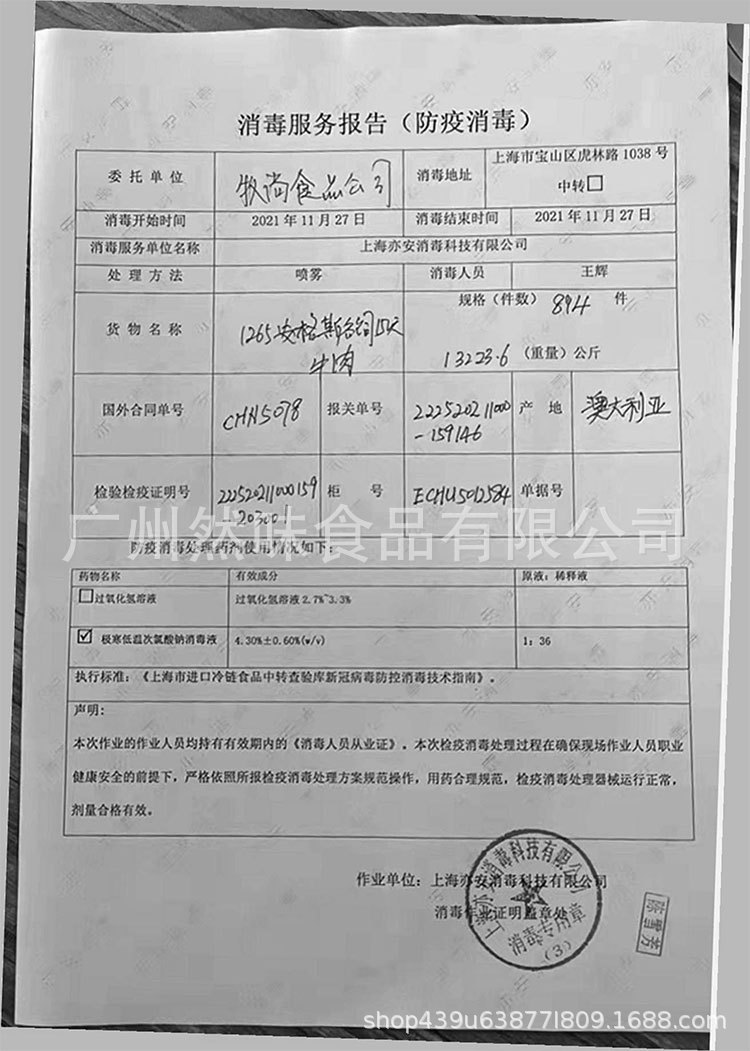 消毒服务报告（防疫消毒）
委托单位 牧尚食品公司 消毒地址 上海市宝山区虎林路 1038 号
中转□
消毒开始时间 2021 年 11 月 27 日 消毒结束时间 2021 年 11 月 27 日
消毒服务单位名称 上海亦安消毒科技有限公司
处理方法 喷雾 消毒人员 王辉
货物名称 1265安格斯谷饲15天 规格（件数）894 件
牛肉 13223.6 （重量）公斤
国外合同单号 CHN5078 报关单号 222520211000 产 地 澳大利亚
-159146
检验检疫证明号 222520211000159 柜 号 ECHU5012584 单据号
-203001
广州然味食品有限公司
防疫消毒处理药剂使用情况如下：
药物名称 有效成分 原液：稀释液
□过氧化氢溶液 过氧化氢溶液 2.7%~3.3%
☑ 极寒低温次氯酸钠消毒液 4.30%±0.60%(w/v) 1：36
执行标准：《上海市进口冷链食品中转查验库新冠病毒防控消毒技术指南》。
声明：
本次作业的作业人员均持有有效期内的《消毒人员从业证》。本次检疫消毒处理过程在确保现场作业人员职业
健康安全的前提下，严格依照所报检疫消毒处理方案规范操作，用药合理规范，检疫消毒处理器械运行正常，
剂量合格有效。
作业单位：上海亦安消毒科技有限公司
消毒作业证明盖章处
上海亦安消毒科技有限公司
消毒专用章
（3）
陈雪芳
shop439u63877l809.1688.com